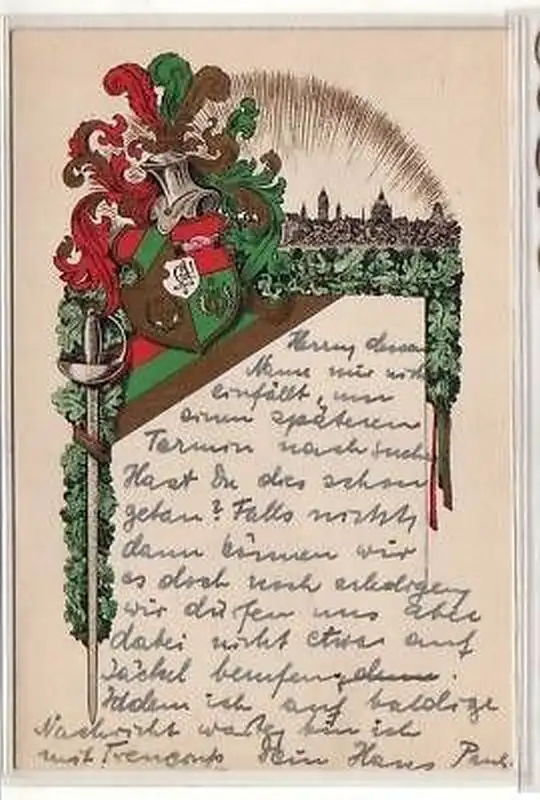 Herrn, dessen
Name mir nicht
einfällt, um
einen späteren
Termin nachsuchen
Hast Du dies schon
getan? Falls nicht,
dann können wir
es doch noch erledigen,
wir dürfen uns aber
dabei nicht etwa auf
Jäckel berufen, denn.
Indem ich auf baldige
Nachricht warte, bin ich
mit Treugruß Dein Hans